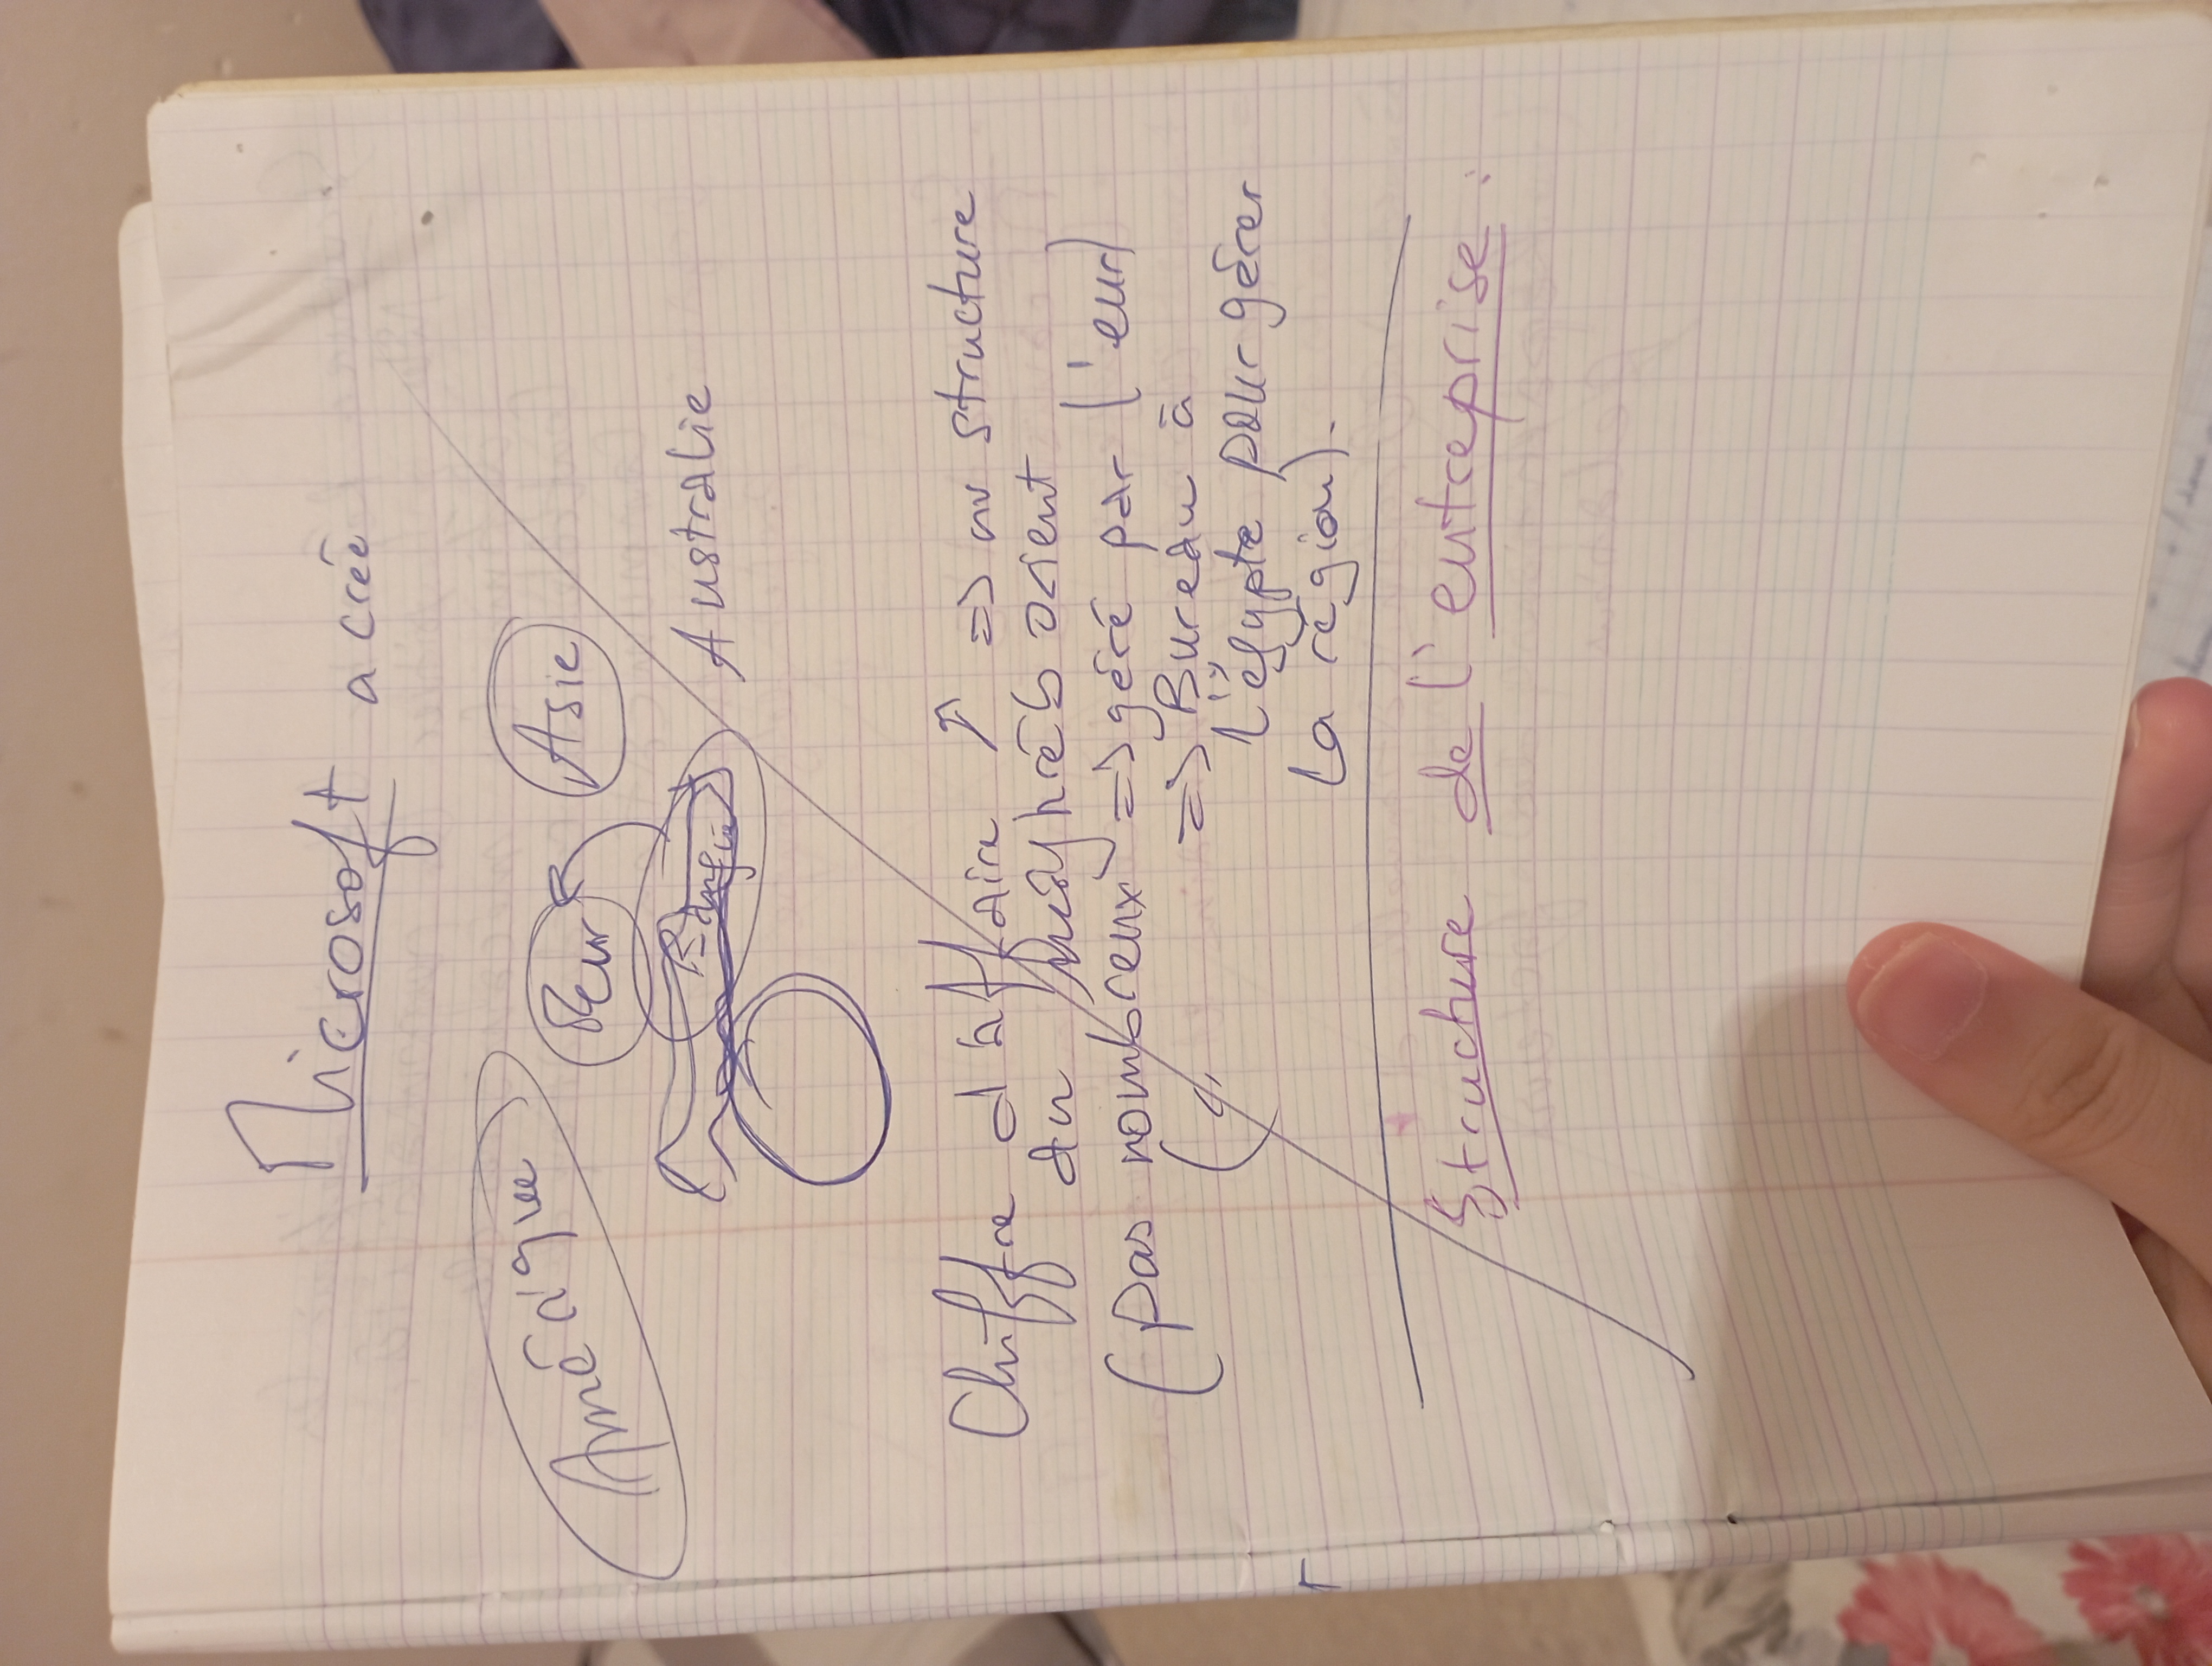 Microsoft a créé
Amérique Eur Asie
Australie
Chiffre d'affaire ↑ => nv structure
au maghréb orient
(pas nombreux => géré par l'eur)
( " => Bureau à
l'égypte pour gérer
la région).
Structure de l'entreprise :